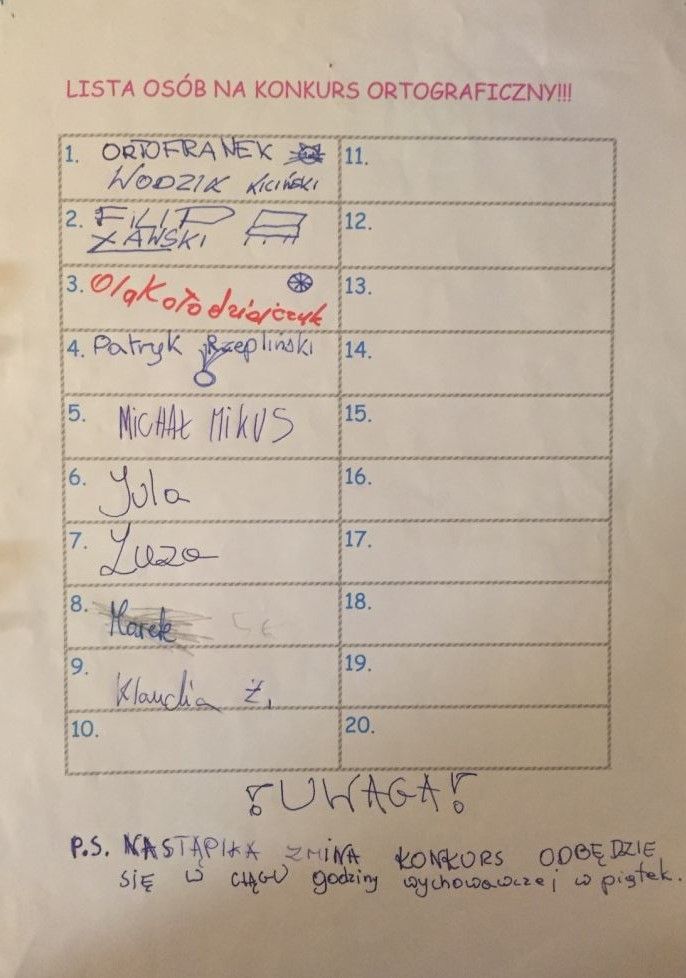 LISTA OSÓB NA KONKURS ORTOGRAFICZNY!!!
1. ORTOFRANEK
WODZIK KICIŃSKI
2. FILIP
ŁAWSKI
3. Ola Kołodziejczyk
4. Patryk Rzepliński
5. MICHAŁ MIKUS
6. Jula
7. Zuza
8. Marek
9. Klaudia Ż.
10.
11.
12.
13.
14.
15.
16.
17.
18.
19.
20.
! UWAGA !
P.S. NASTĄPIŁA ZMINA KONKURS ODBĘDZIE
SIĘ W CIĄGU godziny wychowawczej w piątek.